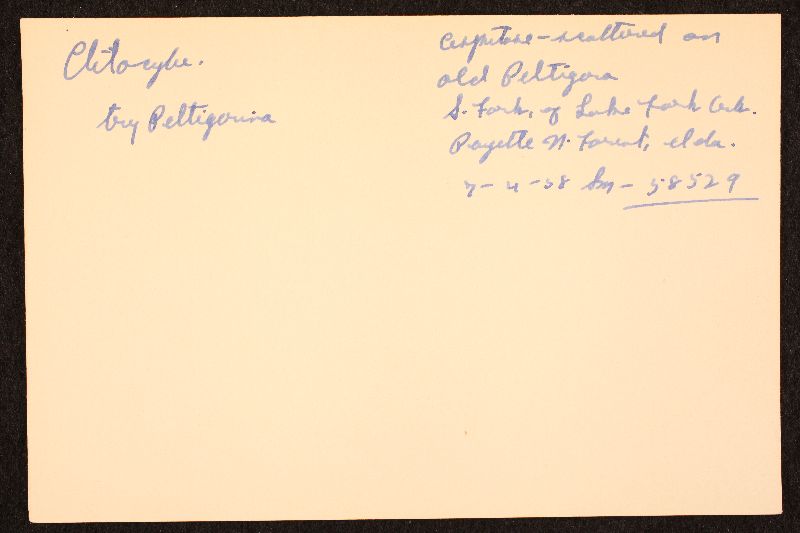 Clitocybe.
try Peltigerina
Cespitose-scattered on
old Peltigera
S. Fork, of Lake Fork Crk.
Payette N. Forest, Ida.
7-4-58 Sm-58529